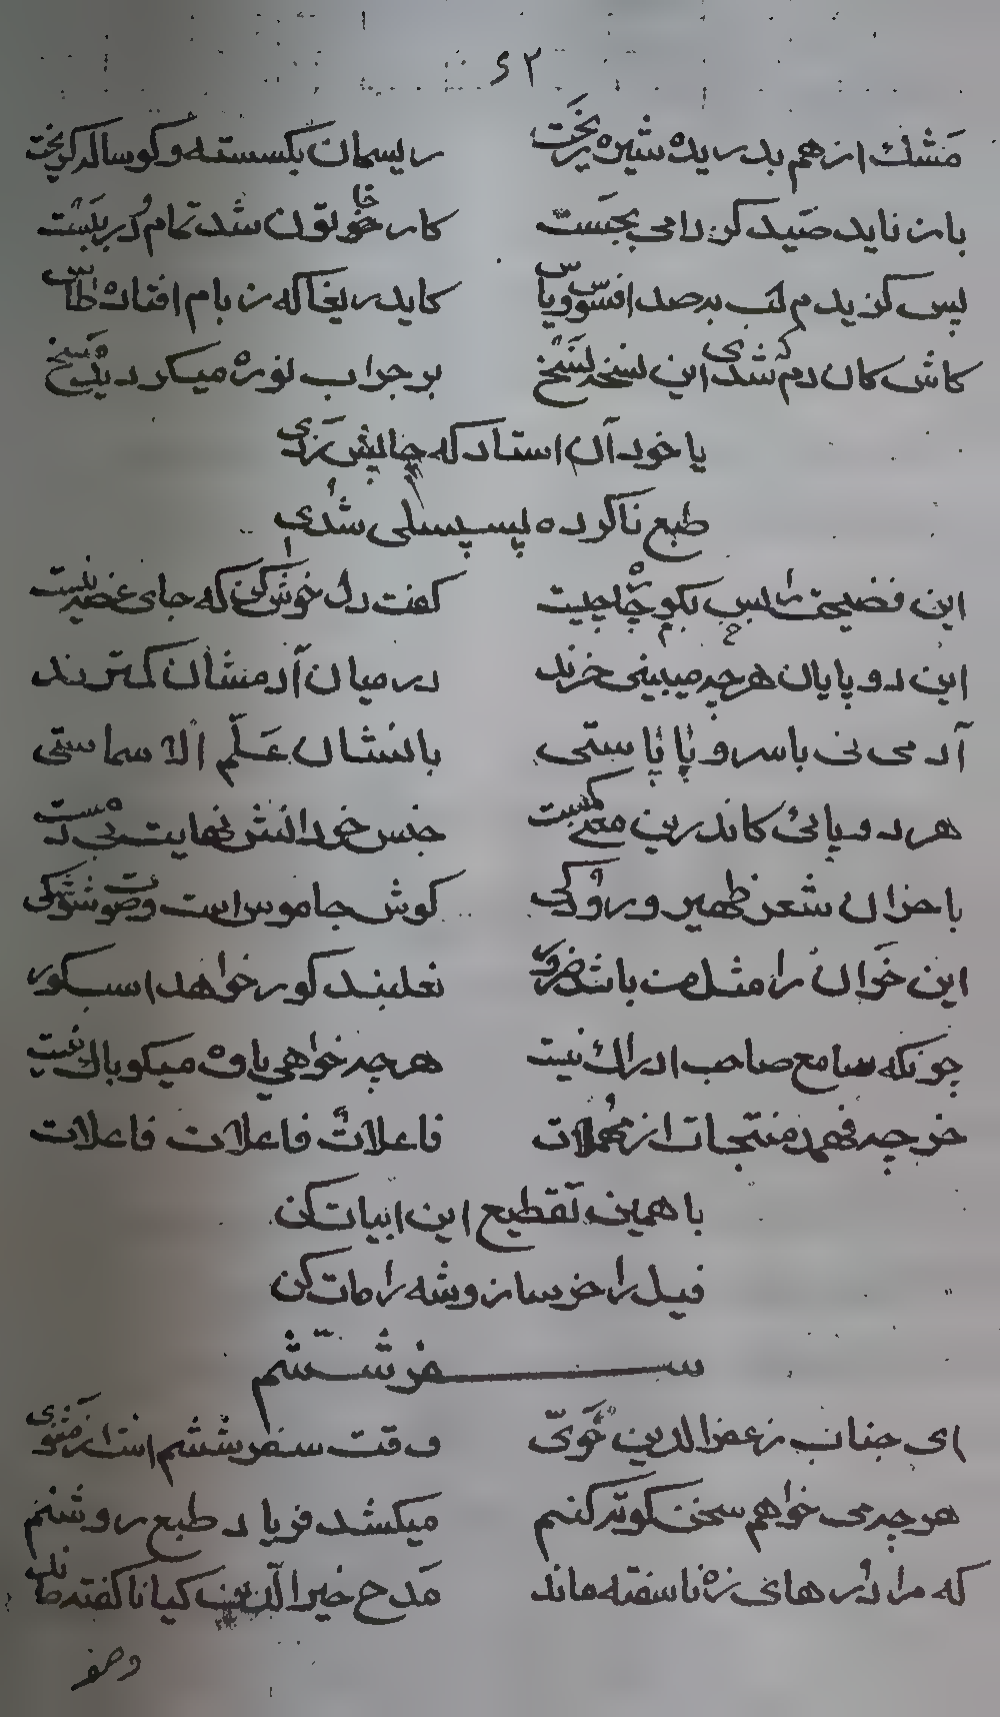 ۶۲
مشك از هم بدریده شیره بریخت ریسمان بکسسته و کوساله کریخت
باز ناید صید کز دامی بجست کار خاخو لوون شد تمام در بلبست
پس کزیدم لب بدصد افسوس و یاس کاید ریغا که ز بام افتاده طاس
کاش کان دم که شدی این نسخه نسخ بر جراب نوره میکردیش
یا خود آن استاد که چالیش زدی
طبع ناکرده پسپسلی شدی
این فضیحت را پس بکو چاره چیست کفت دل خوش کن که جای غصه نیست
این دو پایان هر چه میبینی خرند در میان آدمشان کمترند
آدمی نی با سر و پا پاستی بانشان علم الاسماستی
هر دو پائی کاندرین ممکنست جنس خر دانش نهایت بی دمست
با خران شعر ظهیر و رودکی کوش جاموس است و صوت شوشکی
این خران را مثل من باشد ضرور نعلبند کور خواهد اسب کور
چونکه سامع صاحب ادراك نیست هر چه خواهی یاوه میکو باك نیست
خر چه فهمد منتجات از مهملات فاعلات فاعلات فاعلات
با همین تقطیع این ابیات کن
فیل را خر ساز و شه را مات کن
سفر ششم
ای جناب زعفرالدین غوی وقت سفر ششم است از مثنوی
هر چه می خواهم سخن کوته کنم میکشد فریاد طبع روشنم
که مرا درهای زه ناسفته ماند مدح خیرالدین کیا ناکفته ماند
وصف